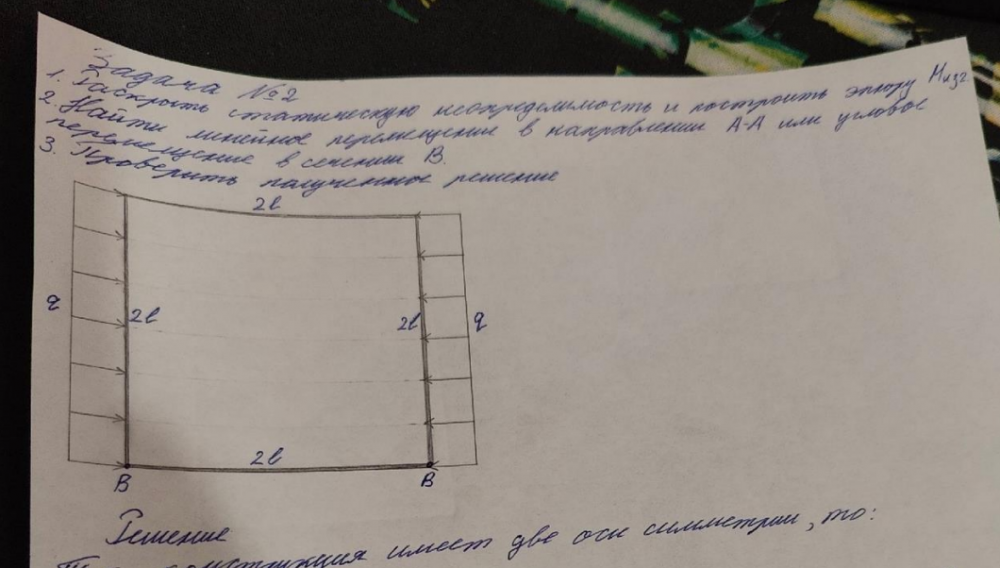 Задача №2
1. Раскрыть статическую неопределимость и построить эпюру Мизг.
2. Найти линейное перемещение в направлении А-А или угловое
перемещение в сечении В.
3. Проверить полученное решение
2l
q
2l
2l
q
2l
В
В
Решение
конструкция имеет две оси симметрии, то: